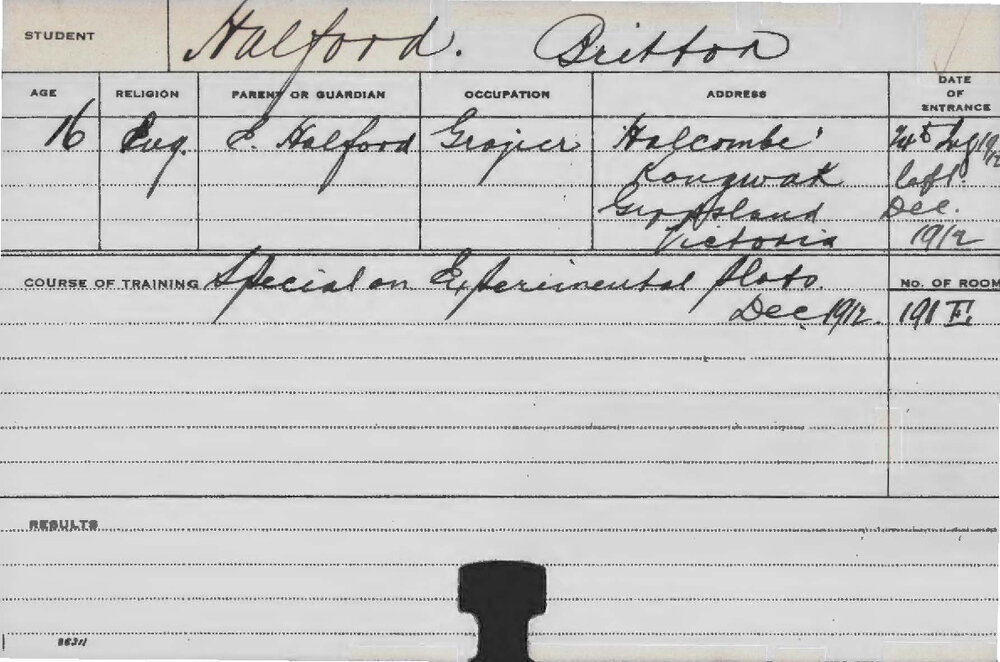 STUDENT Halford. Britton
AGE RELIGION PARENT OR GUARDIAN OCCUPATION ADDRESS DATE OF ENTRANCE
16 Eng. E. Halford Grazier 'Halcombe' 1912
Kongwak left
Gippsland Dec.
Victoria 1912
COURSE OF TRAINING Special on Experimental plots. No. OF ROOM
Dec 1912. 191 E
RESULTS